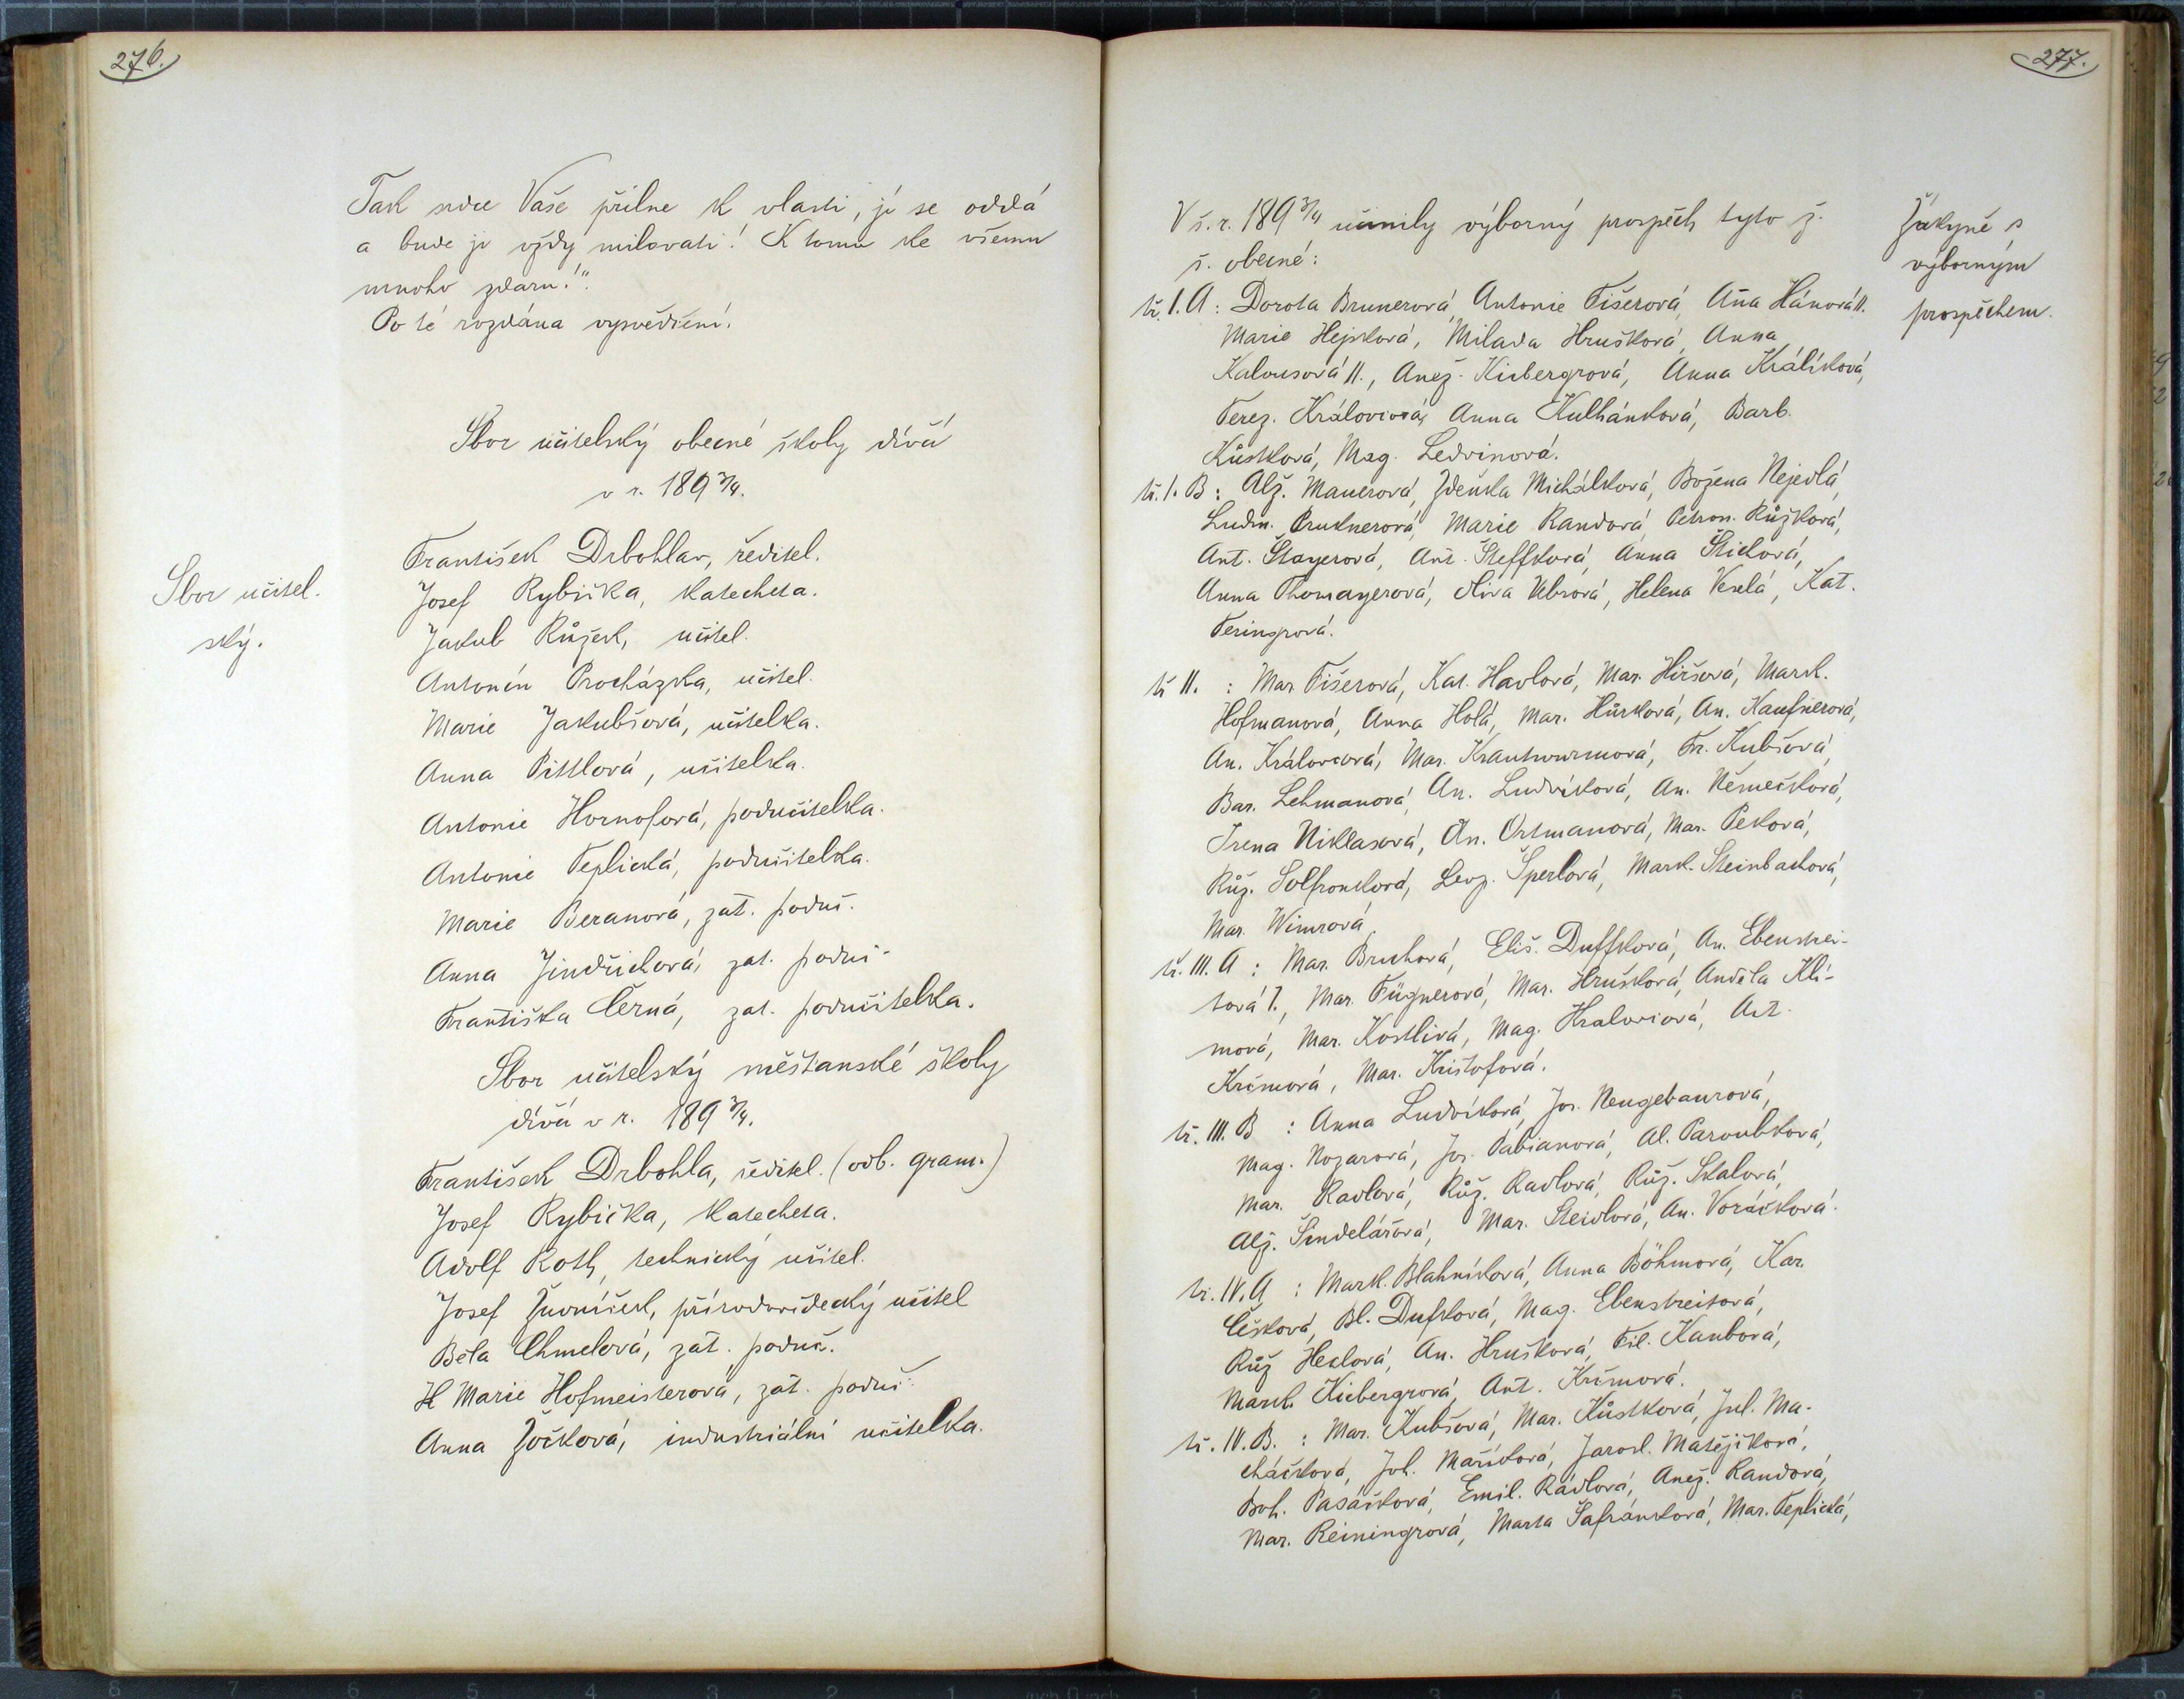 276.
Tak srdce Vaše přilne k vlasti, jí se oddá
a bude ji vždy milovati! K tomu ke všemu
mnoho zdaru!“.
Po té rozdána vysvědčení.
Sbor učitelský obecné školy dívčí
v r. 189 3/4.
Sbor učitel-
ský.
František Drbohlav, ředitel.
Josef Rybička, katecheta.
Jakub Růžek, učitel.
Antonín Procházka, učitel.
Marie Jakubšová, učitelka.
Anna Pittlová, učitelka.
Antonie Hornofová, podučitelka.
Antonie Teplická, podučitelka.
Marie Beranová, zat. poduč.
Anna Jindřichová, zat. poduč.
Františka Černá, zat. podučitelka.
Sbor učitelský měšťanské školy
dívčí v r. 189 3/4.
František Drbohla, ředitel. (odb. gram.)
Josef Rybička, katecheta.
Adolf Roth, technický učitel.
Josef Zvoníček, přírodovědecký učitel
Běla Chmelová, zat. poduč.
H Marie Hofmeisterová, zat. poduč.
Anna Žočková, industriální učitelka.
277.
Žákyně s
výborným
prospěchem.
V š. r. 189 3/4 učinily výborný prospěch tyto ž.
š. obecné:
tř. I. A: Dorota Brunerová, Antonie Fišerová, Aňa Hánová II.
Marie Hejsková, Milada Hrušková, Anna
Kalousová II., Anež. Kicbergrová, Anna Králíková,
Terez. Královcová, Anna Kulhánková, Barb.
Kůstková, Mag. Ledvinová.
tř. I. B: Alž. Mauerová, Zdeňka Michálková, Božena Nejedlá,
Ludm. Pruknerová, Marie Randová, Petron. Růžková,
Ant. Štayerová, Ant. Šteffková, Anna Štichová,
Anna Thomayerová, Oliva Uebrová, Helena Veselá, Kat.
Feringrová.
tř II. : Mar Fišerová, Kat. Havlová, Mar. Hiršová, Mark.
Hofmanová, Anna Holá, Mar. Hůrková, An. Kaufnerová,
An. Královcová, Mar. Krautwurmová, Fr. Kubšová,
Bar. Lehmanová, An. Ludvíková, An. Němečková,
Irena Niklasová, An. Ortmanová, Mar. Peková,
Růž. Solfronková, Leop. Šperlová, Mark. Steinbachová,
Mar. Wimrová
tř. III. A : Mar. Bruchová, Eliš. Duffková, An. Ebenstrei-
tová I., Mar. Fügnerová, Mar. Hrušková, Anděla Kli-
mová, Mar. Kostlivá, Mag. Kralovcová, Ant.
Krčmová, Mar. Krištofová.
tř. III. B : Anna Ludvíková, Jos. Neugebaurová,
Mag. Nozarová, Jos. Pabianová, Al. Paroubková,
Mar. Radlová, Růž. Radlová, Růž. Skalová,
Alž. Šindelářová, Mar. Šteidlová, An. Voráčková.
tř. IV. A : Mark. Blahníková, Anna Böhmová, Kar.
Češková, Bl. Dufková, Mag. Ebenstreitová,
Růž Heklová, An. Hrušková, Fil. Kaubová,
Mark. Kicbergrová, Ant. Krčmová.
tř. IV. B. : Mar. Kubšová, Mar. Kůstková, Jul. Ma-
cháčková, Joh. Maříková, Jarosl. Matějčková,
Boh. Pasáčková, Emil. Rádlová, Anež. Randová,
Mar. Reiningrová, Marta Šafránková, Mar. Teplická,